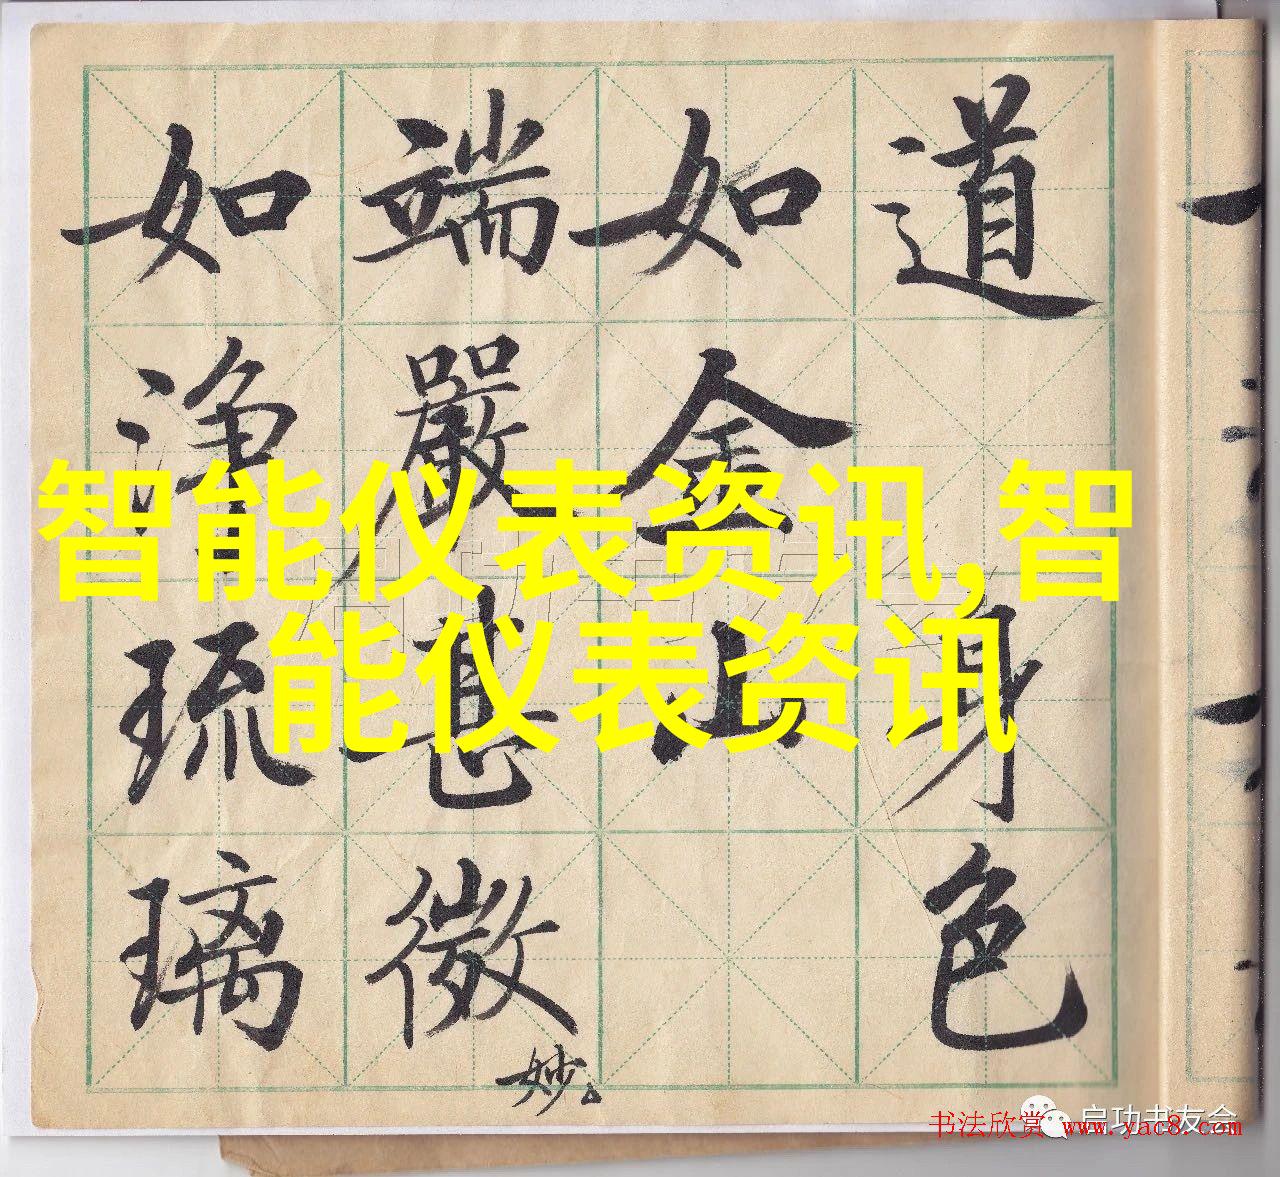 道身色
如金山
端嚴甚微妙
如浄琉璃
智能仪表资讯,智
能仪表资讯
启功书友会
书法欣赏 www.yac8.com